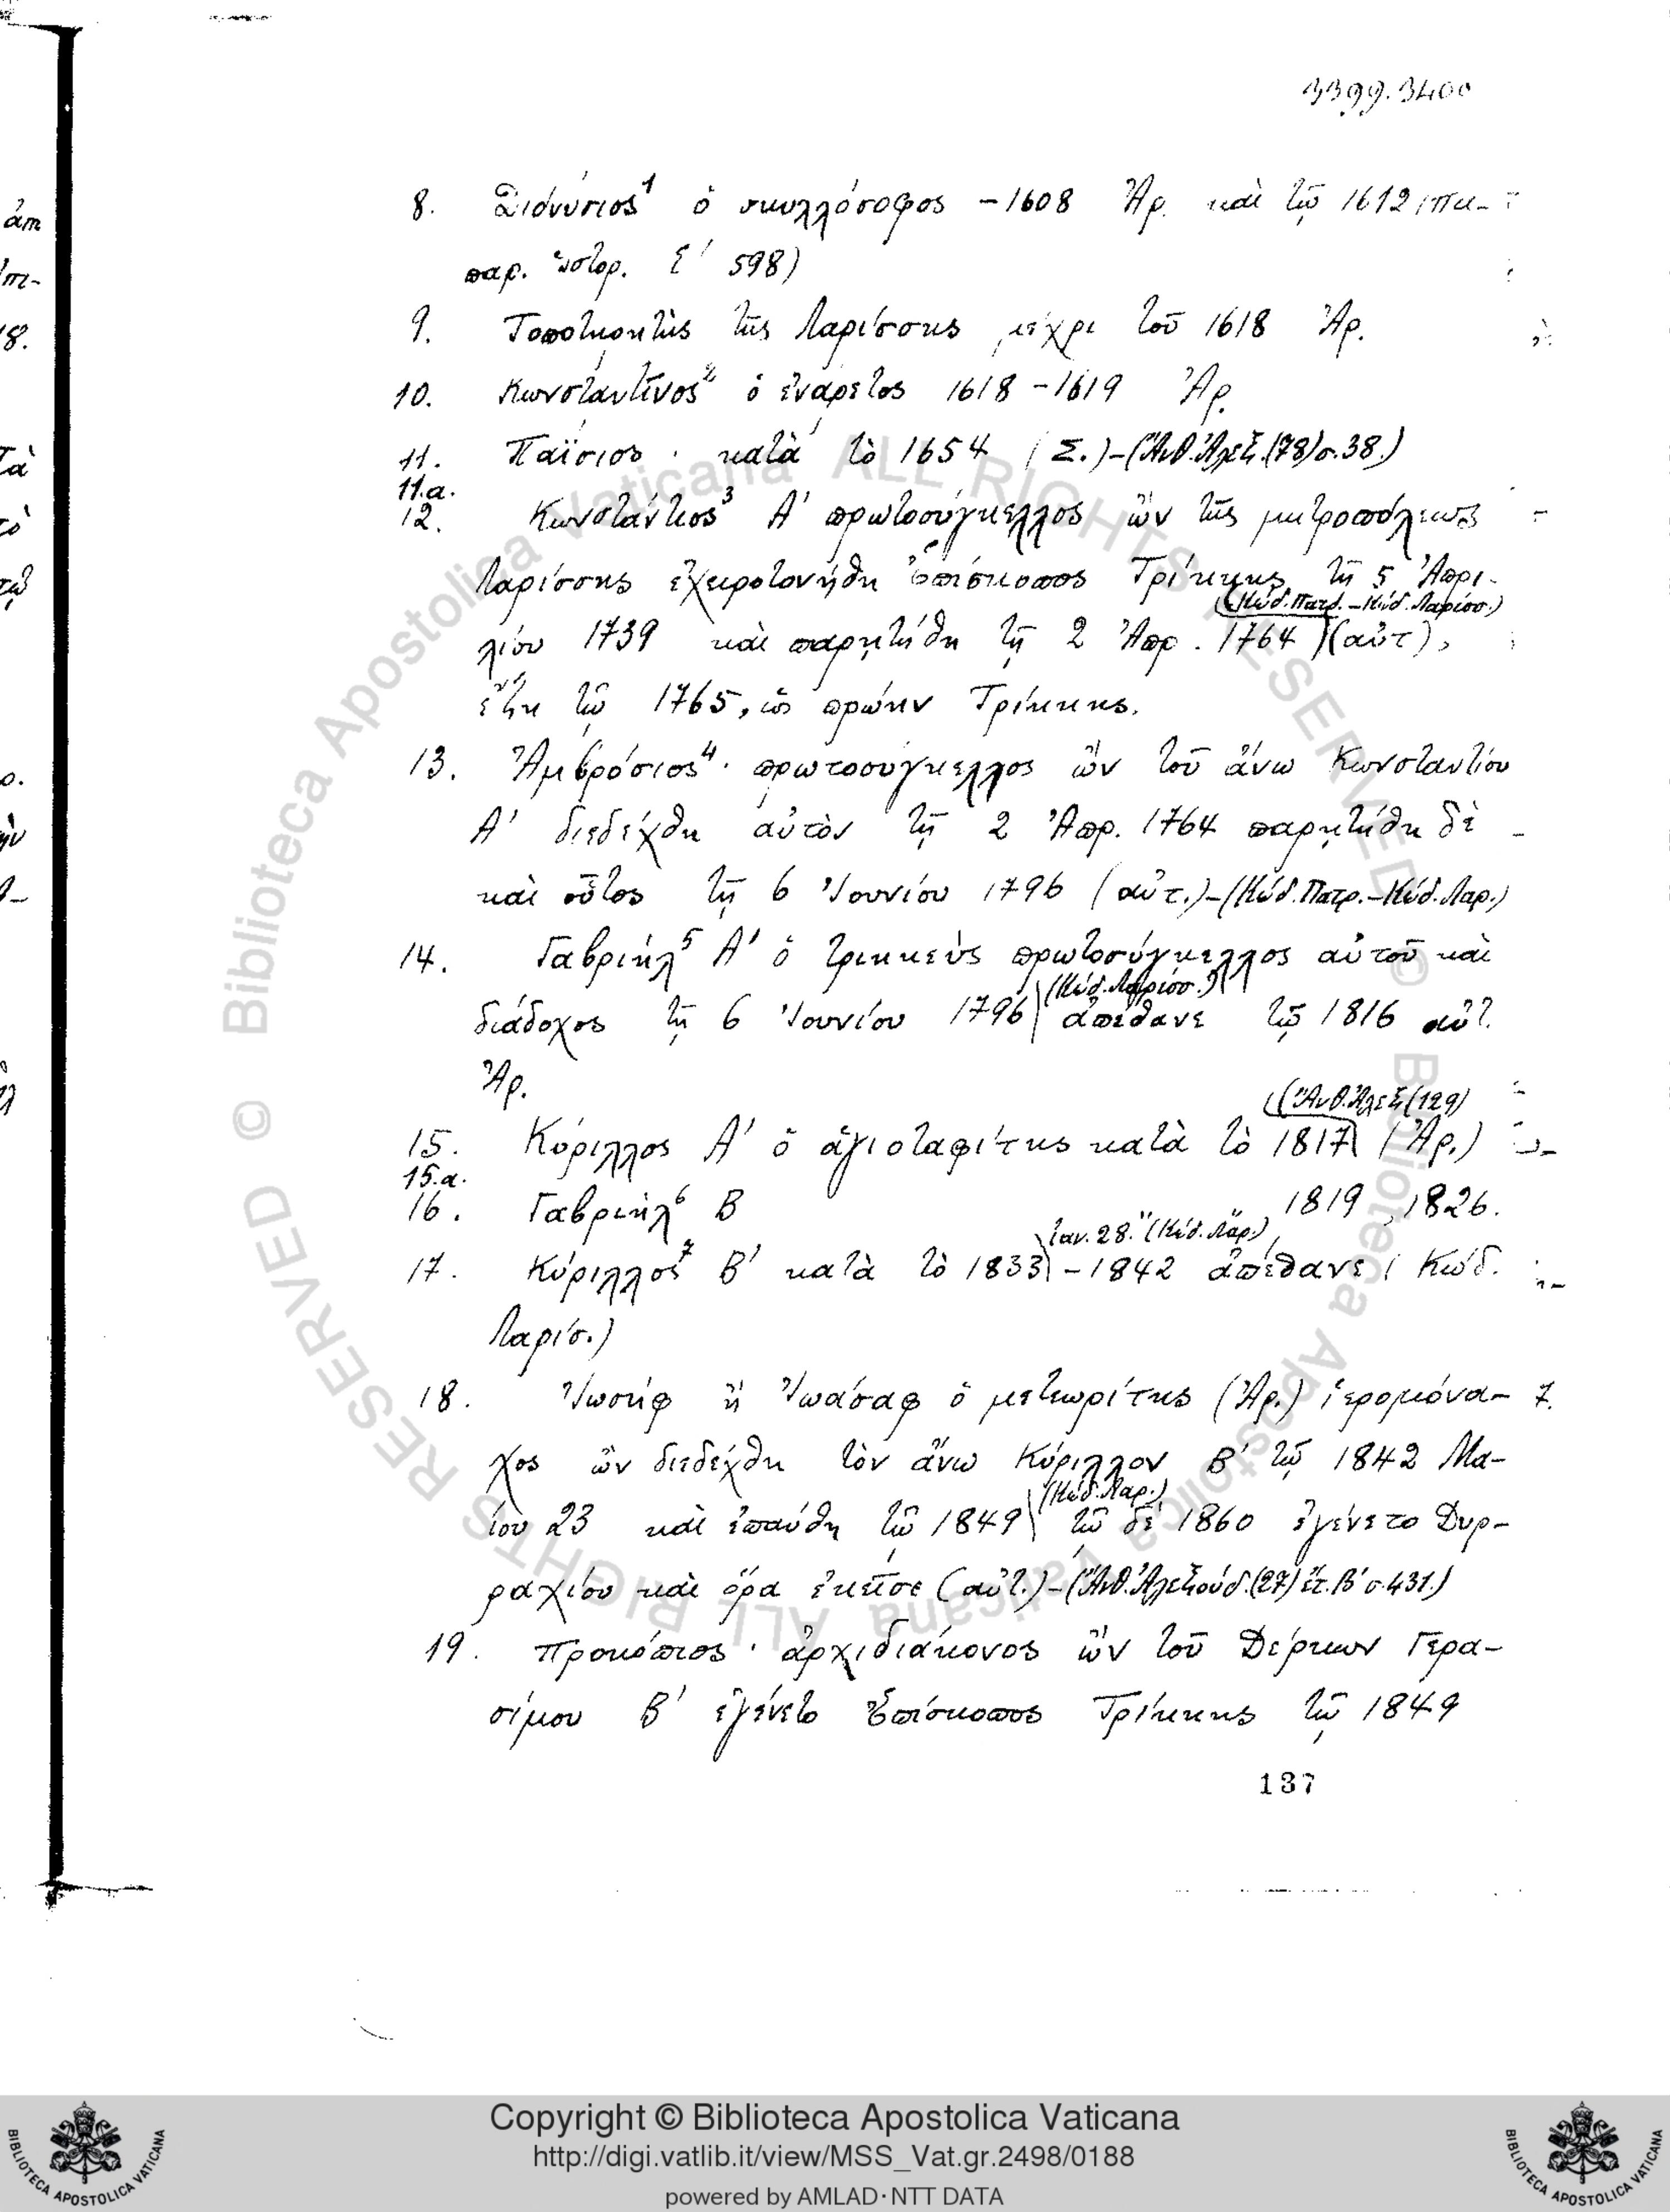 3399.3400
8. Διονύσιος¹ ὁ σκυλλόσοφος -1608 Ἀρ. καὶ τῷ 1612
παρ. ἱστορ. 598)
9. Τοποτηρητὴς τῆς Λαρίσσης μέχρι τοῦ 1618 Ἀρ.
10. Κωνσταντῖνος² ὁ ἐνάρετος 1618-1619 Ἀρ.
11. Παΐσιος · κατὰ τὸ 1654 (Σ.)-(Ἄνθ.Ἀλεξ.(78)σ.38.)
11.α.
12. Κωνστάντιος³ Α' πρωτοσύγκελλος ὢν τῆς μητροπόλεως
Λαρίσσης ἐχειροτονήθη ἐπίσκοπος Τρίκκης τῇ 5 Ἀπρι-
(Κώδ.Πατρ.-Κώδ.Λαρίσσ.)
λίου 1739 καὶ παρῃτήθη τῇ 2 Ἀπρ. 1764 (αὐτ),
ἔζη τῷ 1765, ὡς πρώην Τρίκκης.
13. Ἀμβρόσιος⁴· πρωτοσύγκελλος ὢν τοῦ ἄνω Κωνσταντίου
Α' διεδέχθη αὐτὸν τῇ 2 Ἀπρ. 1764 παρῃτήθη δὲ
καὶ οὗτος τῇ 6 Ἰουνίου 1796 (αὐτ.)-(Κώδ.Πατρ.-Κώδ.Λαρ.)
14. Γαβριὴλ⁵ Α' ὁ τρικκεὺς πρωτοσύγκελλος αὐτοῦ καὶ
(Κώδ.Λαρίσσ.)
διάδοχος τῇ 6 Ἰουνίου 1796 ἀπέθανε τῷ 1816 αὐτ.
Ἀρ.
(Ἄνθ.Ἀλεξ(129)
15. Κύριλλος Α' ὁ ἁγιοταφίτης κατὰ τὸ 1817 (Ἀρ.)
15.α.
16. Γαβριὴλ⁶ Β 1819, 1826.
Ἰαν.28. (Κώδ.Λαρ.)
17. Κύριλλος⁷ Β' κατὰ τὸ 1833 - 1842 ἀπέθανε (Κώδ.
Λαρίσ.)
18. Ἰωσὴφ ἢ Ἰωάσαφ ὁ μετεωρίτης (Ἀρ.) ἱερομόνα-
χος ὢν διεδέχθη τὸν ἄνω Κύριλλον Β' τῷ 1842 Μα-
(Κώδ.Λαρ.)
ΐου 23 καὶ ἐπαύθη τῷ 1849 τῷ δὲ 1860 ἐγένετο Δυρ-
ραχίου καὶ ὅρα ἐκεῖσε (αὐτ.)-(Ἄνθ.Ἀλεξούδ.(27)ἔτ.Β' σ.431.)
19. Προκόπιος · ἀρχιδιάκονος ὢν τοῦ Δέρκων Γερα-
σίμου Β' ἐγένετο Ἐπίσκοπος Τρίκκης τῷ 1849
137
© Biblioteca Apostolica Vaticana ALL RIGHTS RESERVED
© Biblioteca Apostolica Vaticana ALL RIGHTS RESERVED
Copyright © Biblioteca Apostolica Vaticana
http://digi.vatlib.it/view/MSS_Vat.gr.2498/0188
powered by AMLAD·NTT DATA
BIBLIOTECA APOSTOLICA VATICANA
BIBLIOTECA APOSTOLICA VATICANA